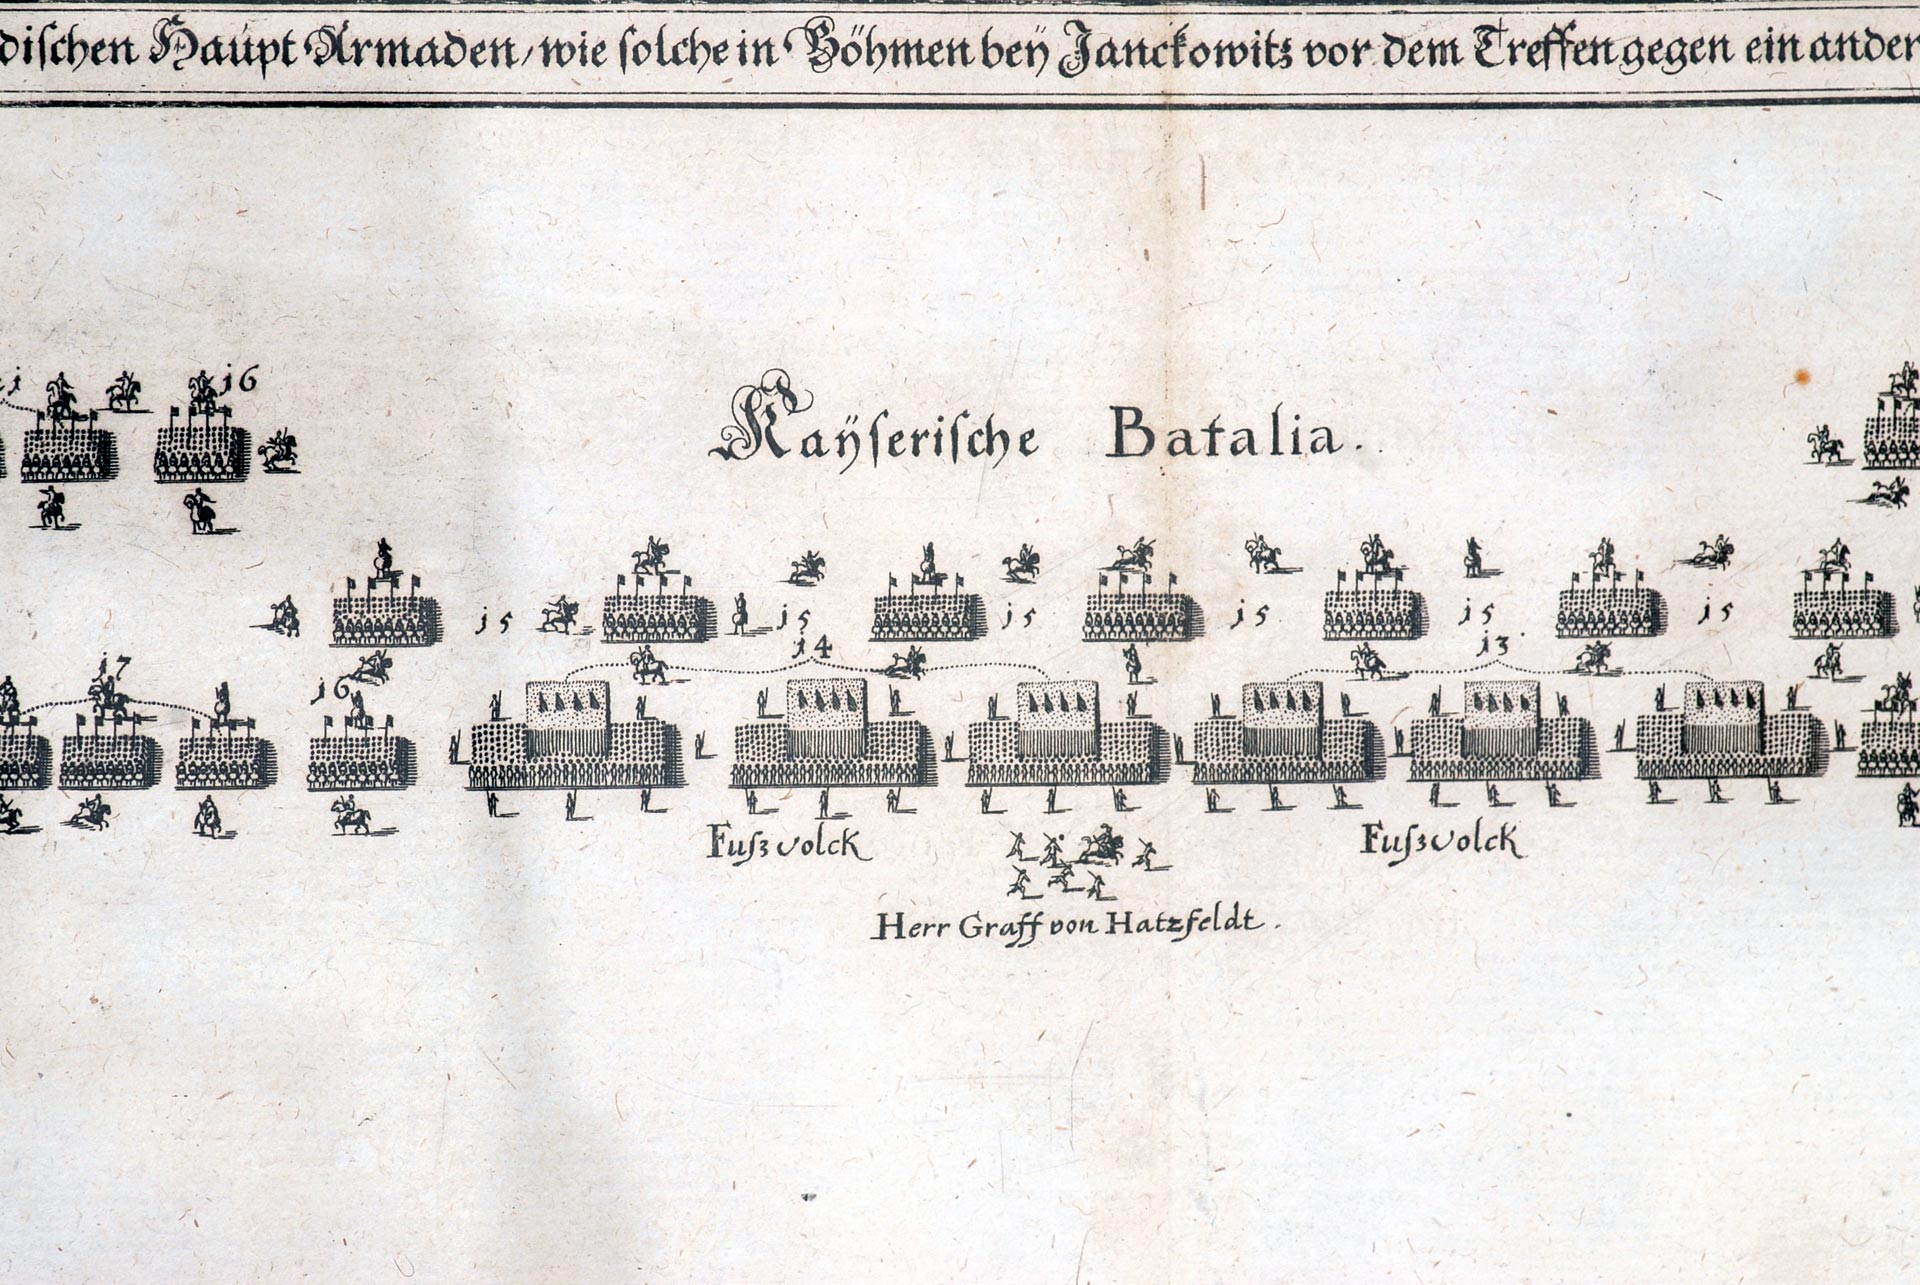 dischen Haupt Armaden, wie solche in Böhmen beÿ Janckowitz vor dem Treffen gegen ein ander
16
Kaÿserische Batalia.
15 15 15 15 15 15
14 13
17 16
Fuſzvolck Fuſzvolck
Herr Graff von Hatzfeldt.